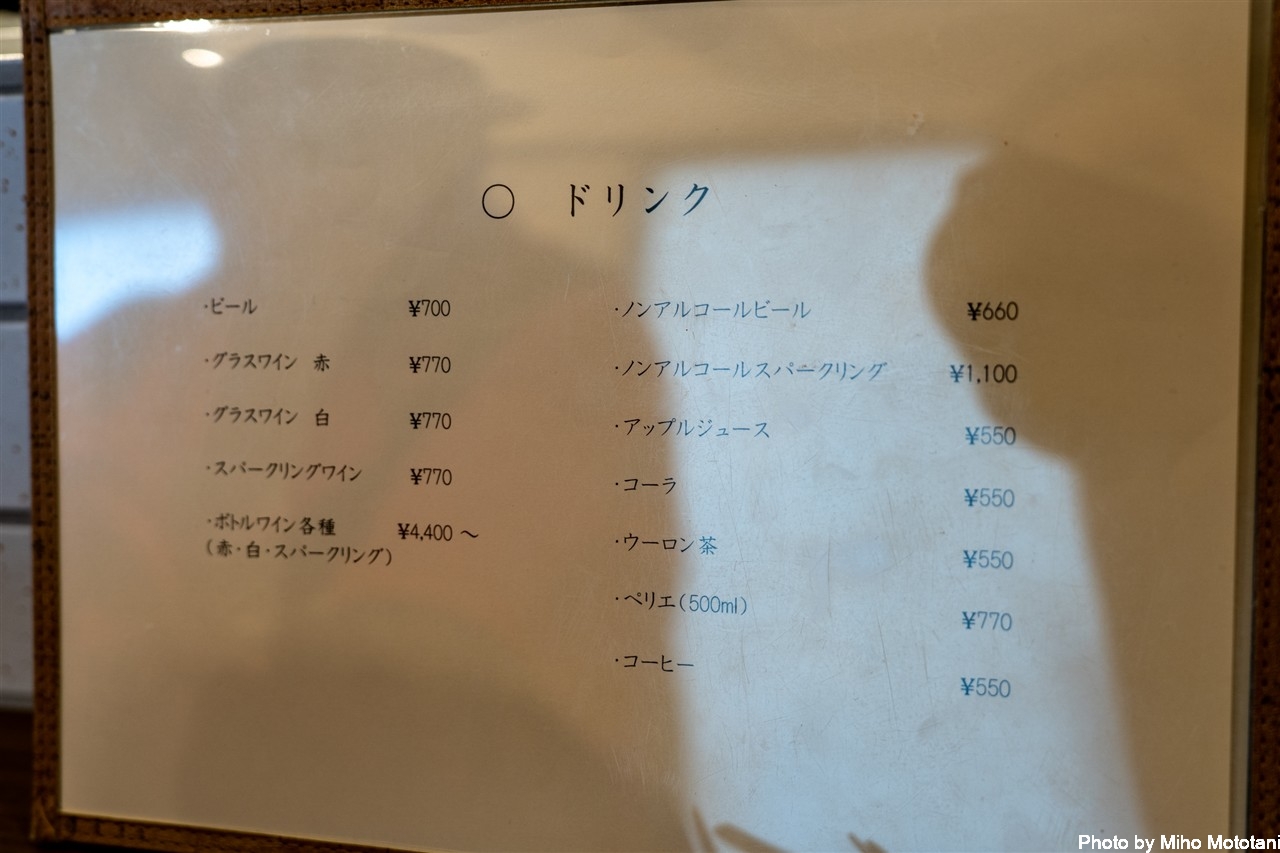 ○ ドリンク
・ビール ¥700
・グラスワン 赤 ¥770
・グラスワイン 白 ¥770
・スパークリングワイン ¥770
・ボトルワイン各種 ¥4,400 ～
(赤・白・スパークリング)
・ノンアルコールビール ¥660
・ノンアルコールスパークリング ¥1,100
・アップルジュース ¥550
・コーラ ¥550
・ウーロン茶 ¥550
・ペリエ(500ml) ¥770
・コーヒー ¥550
Photo by Miho Mototani